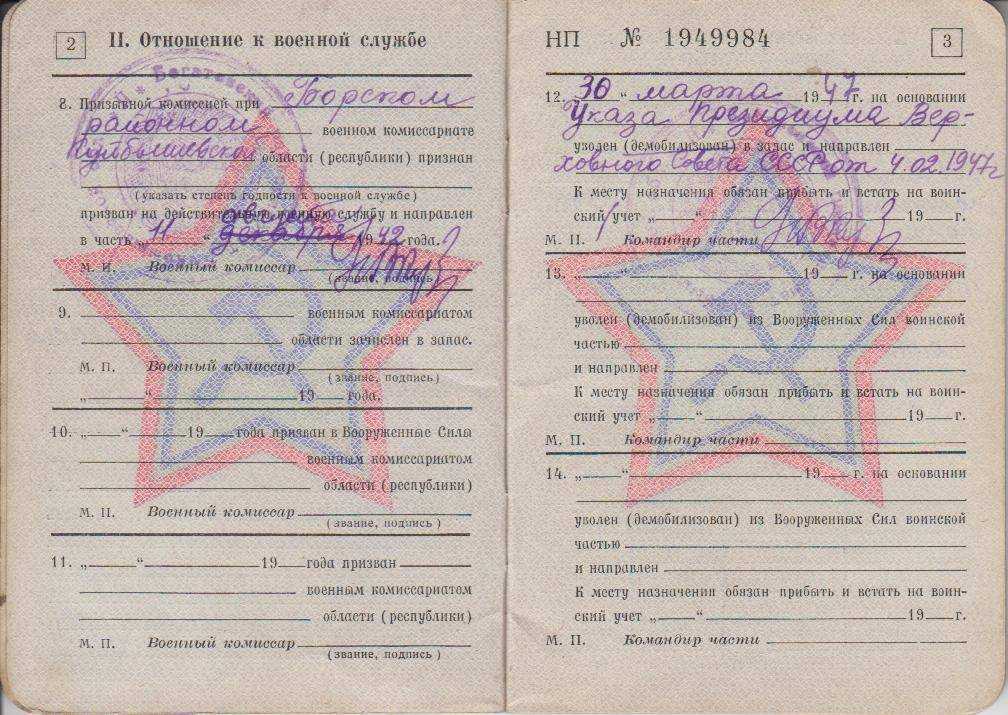 2
II. Отношение к военной службе
8. Призывной комиссией при Борском
районном военном комиссариате
Куйбышевской области (республики) признан
(указать степень годности к военной службе)
призван на действительную военную службу и направлен
в часть „ 11 “ декабря 1942 года.
М. П. Военный комиссар
(звание, подпись)
9. военным комиссариатом
области зачислен в запас.
М. П. Военный комиссар
(звание, подпись)
„ “ 19 года.
10. „ “ 19 года призван в Вооруженные Силы
военным комиссариатом
области (республики)
М. П. Военный комиссар
(звание, подпись)
11. „ “ 19 года призван
военным комиссариатом
области (республики)
М. П. Военный комиссар
(звание, подпись)
НП № 1949984
3
12. „ 30 “ марта 1947 г. на основании
Указа Президиума Вер-
уволен (демобилизован) в запас и направлен
ховного Совета СССР от 4.02.1947г
К месту назначения обязан прибыть и встать на воин-
ский учет „ “ 19 г.
М. П. Командир части
13. „ “ 19 г. на основании
уволен (демобилизован) из Вооруженных Сил воинской
частью
и направлен
К месту назначения обязан прибыть и встать на воин-
ский учет „ “ 19 г.
М. П. Командир части
14. „ “ 19 г. на основании
уволен (демобилизован) из Вооруженных Сил воинской
частью
и направлен
К месту назначения обязан прибыть и встать на воин-
ский учет „ “ 19 г.
М. П. Командир части